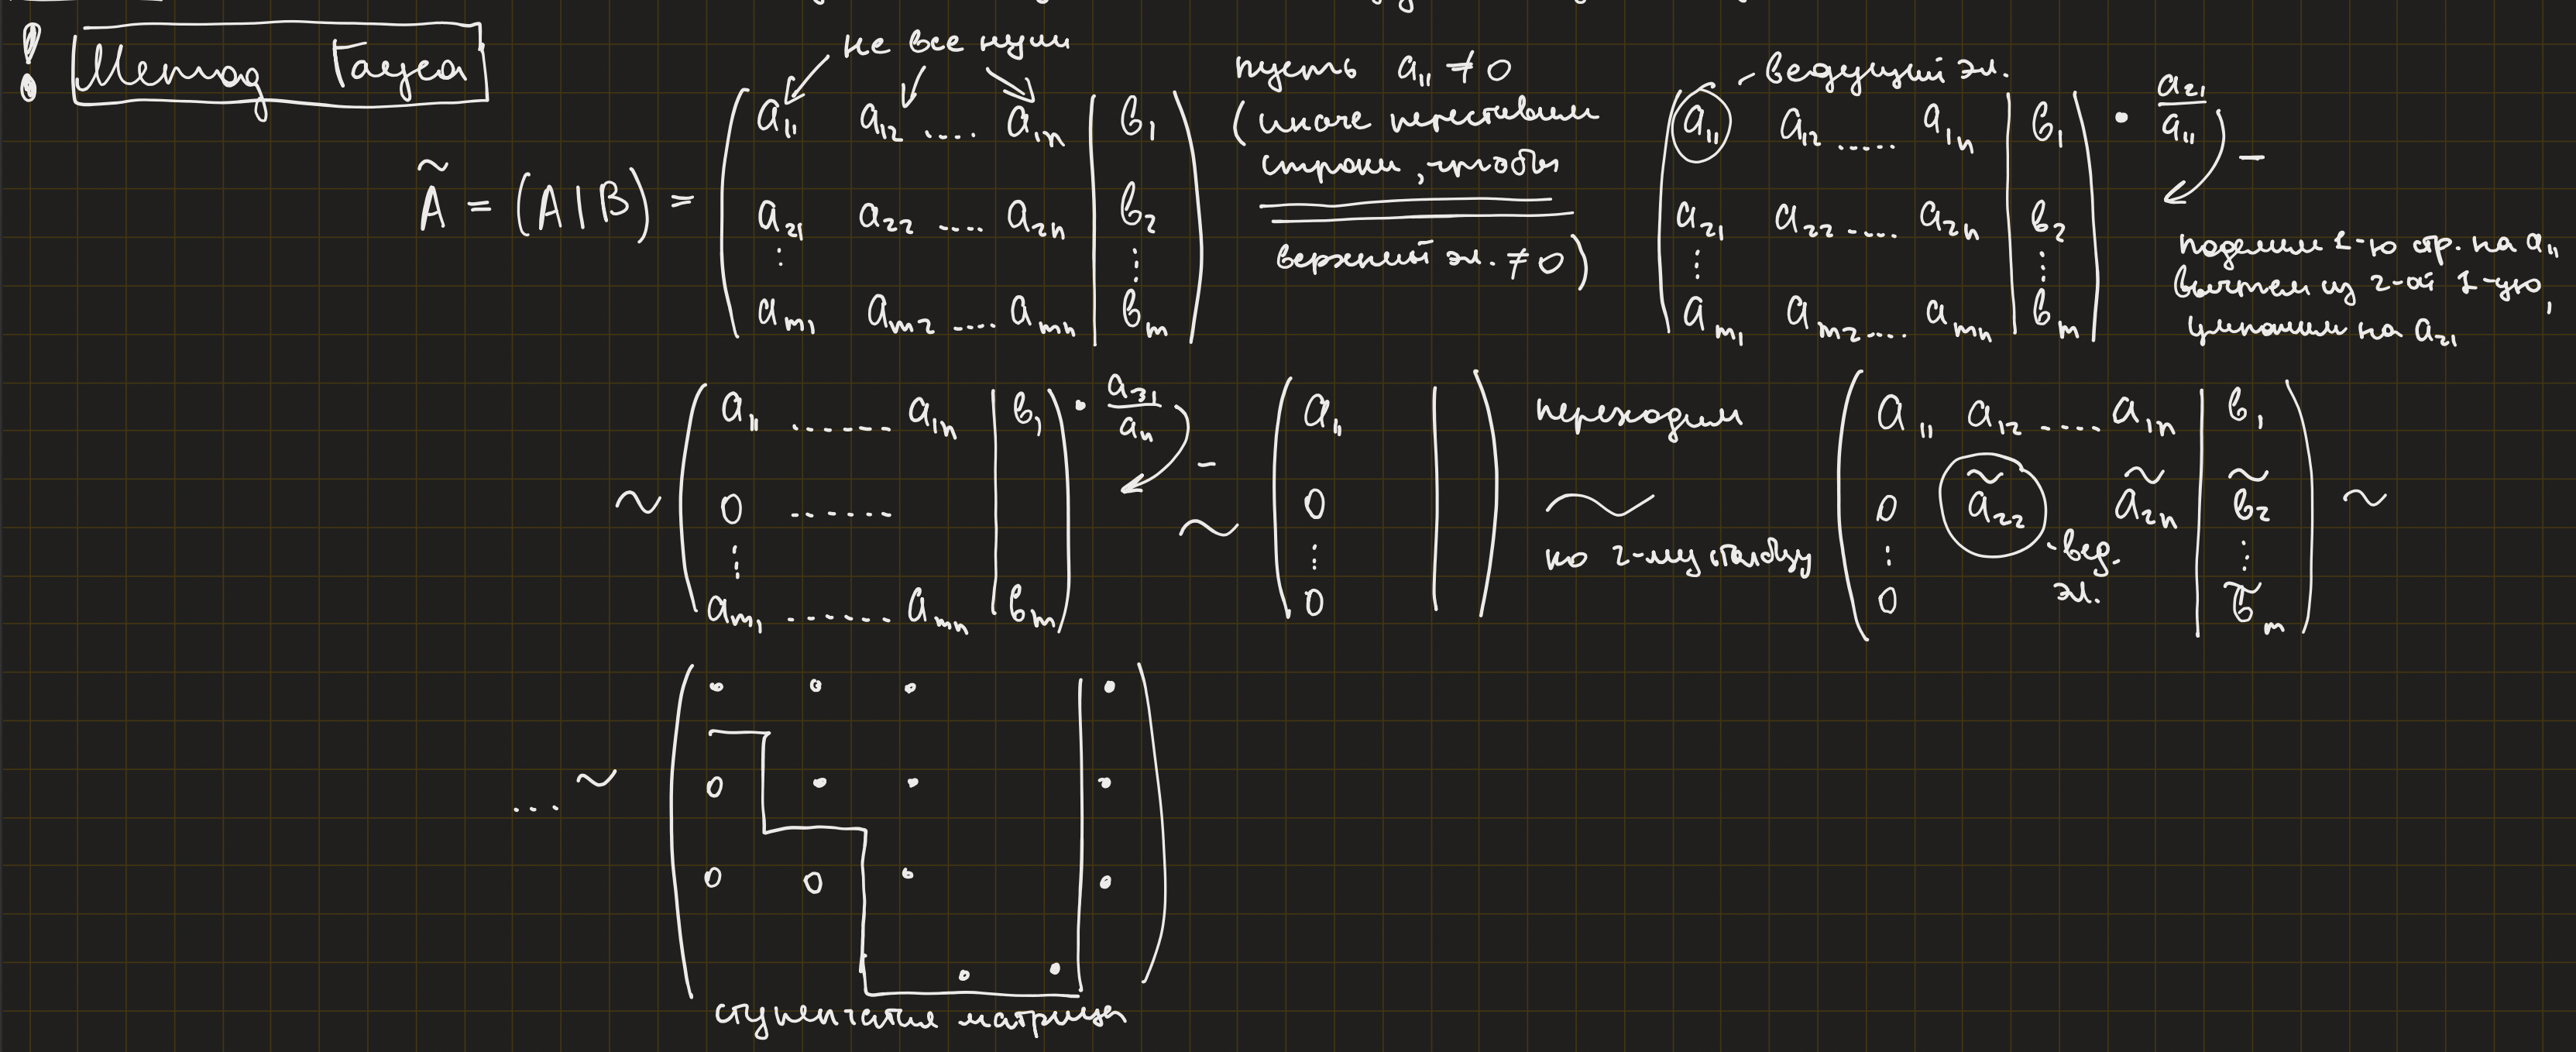 ! Метод Гаусса
не все нули
Ã = (A|B) =
a₁₁ a₁₂ .... a₁ₙ | b₁
a₂₁ a₂₂ .... a₂ₙ | b₂
⋮ ⋮
aₘ₁ aₘ₂ .... aₘₙ | bₘ
пусть a₁₁ ≠ 0
(иначе переставим
строки, чтобы
верхний эл. ≠ 0)
- ведущий эл.
a₁₁ a₁₂ ..... a₁ₙ | b₁ · a₂₁/a₁₁ -
a₂₁ a₂₂ ..... a₂ₙ | b₂
⋮ ⋮
aₘ₁ aₘ₂ .... aₘₙ | bₘ
поделим 1-ю стр. на a₁₁
вычтем из 2-ой 1-ую,
умножим на a₂₁
~
a₁₁ ...... a₁ₙ | b₁ · a₃₁/a₁₁ -
0 ......
⋮
aₘ₁ ....... aₘₙ | bₘ
~
a₁₁
0
⋮
0
переходим
~
ко 2-му столбцу
a₁₁ a₁₂ ..... a₁ₙ | b₁
0 ã₂₂ ã₂ₙ | b̃₂ ~
- вед. эл.
⋮ ⋮
0 b̃ₘ
... ~
· · · | ·
0 · · | ·
0 0 · | ·
· ·
ступенчатая матрица